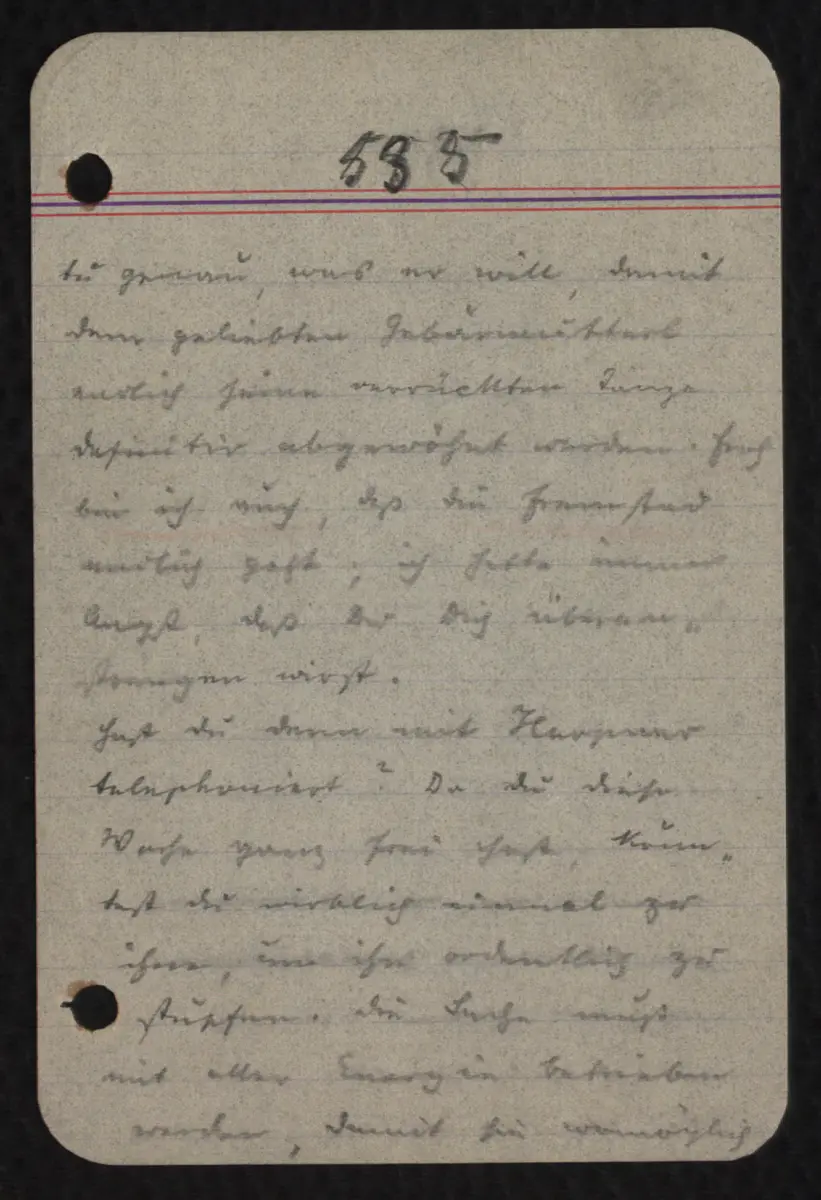 585
tu genau, was er will, damit
dem geliebten Gebärmutterl
endlich seine verrückten Tänze
definitiv abgewöhnt werden. Froh
bin ich auch, daß die Fremstad
endlich geht; ich hatte immer
Angst, daß Du Dich überan„
strengen wirst.
Hast du denn mit
telephoniert? Da du diese
Woche ganz frei hast, könn„
test du wirklich einmal zu
ihm, um ihn ordentlich zu
stupfen. Die Sache muß
mit aller Energie betrieben
werden, damit sie womöglich